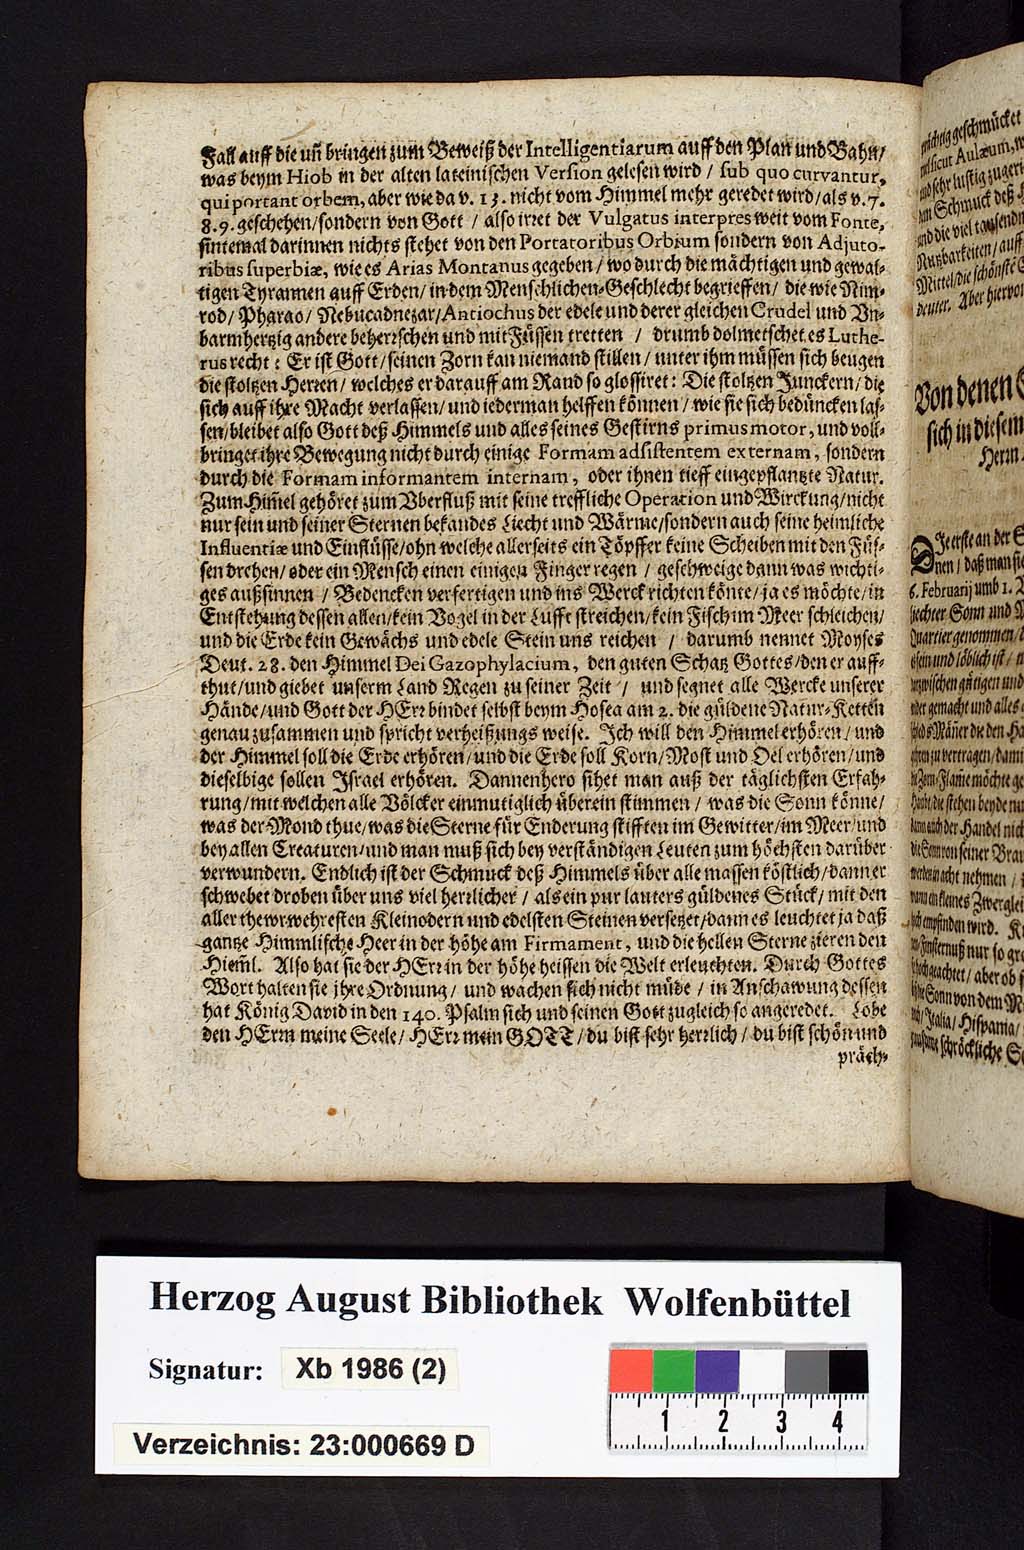 Fall auff die uñ bringen zum Beweiß der Intelligentiarum auff den Plan und Bahn/
was beym Hiob in der alten lateinischen Version gelesen wird / sub quo curvantur,
qui portant orbem, aber wie da v. 13. nicht vom Himmel mehr geredet wird/als v. 7.
8. 9. geschehen/sondern von Gott / also irret der Vulgatus interpres weit vom Fonte,
sintemal darinnen nichts stehet von den Portatoribus Orbium sondern von Adjuto-
ribus superbiæ, wie es Arias Montanus gegeben/ wo durch die mächtigen und gewal-
tigen Tyrannen auff Erden/ in dem Menschlichen-Geschlecht begrieffen/ die wie Nim-
rod/ Pharao/ Nebucadnezar/Antiochus der edele und derer gleichen Crudel und Un-
barmhertzig andere beherrschen und mit Füssen tretten / drumb dolmetschet es Luthe-
rus recht: Er ist Gott/ seinen Zorn kan niemand stillen/ unter ihm müssen sich beugen
die stoltzen Herren/ welches er darauff am Rand so glossiret: Die stoltzen Junckern/ die
sich auff ihre Macht verlassen/ und iederman helffen können/ wie sie sich bedüncken las-
sen/bleibet also Gott deß Himmels und alles seines Gestirns primus motor, und voll-
bringet ihre Bewegung nicht durch einige Formam adsistentem externam, sondern
durch die Formam informantem internam, oder ihnen tieff eingepflantzte Natur.
Zum Him̃el gehöret zum Vberfluß mit seine treffliche Operation und Wirckung/nicht
nur sein und seiner Sternen bekandes Liecht und Wärme/sondern auch seine heimliche
Influentiæ und Einflüsse/ohn welche allerseits ein Töpffer keine Scheiben mit den Füs-
sen drehen/ oder ein Mensch einen einigen Finger regen/ geschweige dann was wichti-
ges außsinnen / Bedencken verfertigen und ins Werck richten könte/ ja es möchte/ in
Entstehung dessen allen/kein Vogel in der Lufft streichen/kein Fisch im Meer schleichen/
und die Erde kein Gewächs und edele Stein uns reichen / darumb nennet Moyses
Deut. 28. den Himmel Dei Gazophylacium, den guten Schatz Gottes/den er auff-
thut/und giebet unserm Land Regen zu seiner Zeit / und segnet alle Wercke unserer
Hände/und Gott der HErr bindet selbst beym Hosea am 2. die güldene Natur-Ketten
genau zusammen und spricht verheißungs weise. Ich will den Himmel erhören/ und
der Himmel soll die Erde erhören/ und die Erde soll Korn/Most und Oel erhören/und
dieselbige sollen Israel erhören. Dannenhero sihet man auß der täglichsten Erfah-
rung/mit welchen alle Völcker einmutiglich überein stimmen/ was die Sonn könne/
was der Mond thue/was die Sterne für Enderung stifften im Gewitter/im Meer/und
bey allen Creaturen/und man muß sich bey verständigen Leuten zum höchsten darüber
verwundern. Endlich ist der Schmuck deß Himmels über alle massen köstlich/dann er
schwebet droben über uns viel herrlicher/ als ein pur lauters güldenes Stück/ mit den
aller thewrwehresten Kleinodern und edelsten Steinen versetzet/dann es leuchtet ja daß
gantze Himmlische Heer in der höhe am Firmament, und die hellen Sterne zieren den
Hiem̃l. Also hat sie der HErr in der höhe heissen die Welt erleuchten. Durch Gottes
Wort halten sie jhre Ordnung/ und wachen sich nicht müde / in Anschawung dessen
hat König David in den 140. Psalm sich und seinen Gott zugleich so angeredet. Lobe
den HErrn meine Seele/ HErr mein GOTT/ du bist sehr herrlich/ du bist schön und
präch-
Von denen
sich in diesem
Herrn
Herzog August Bibliothek Wolfenbüttel
Signatur: Xb 1986 (2)
1 2 3 4
Verzeichnis: 23:000669 D